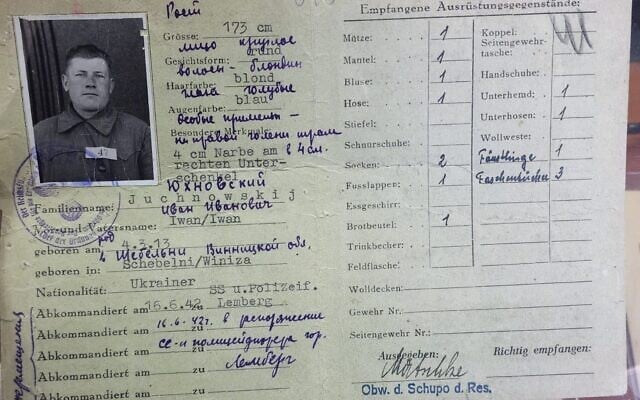 Рост
Grösse: 173 cm
лицо круглое
Gesichtsform: rund
волосы - блондин
Haarfarbe: blond
глаза голубые
Augenfarbe: blau
особые приметы -
Besondere Merkmale:
на правой голени шрам
4 cm Narbe am в 4 см.
rechten Unter-
schenkel
47
Юхновский
Familienname: Juchnowskij
Иван Иванович
Vor- und Vatersname: Iwan/Iwan
род
geboren am 4.3.13
Щебельни Винницкой обл.
geboren in: Schebelni/Winiza
Nationalität: Ukrainer
SS u.Polizeif.
Abkommandiert am 16.6.42 zu Lemberg
16.6.42г. в распоряжение
Abkommandiert am zu
СС и полицейфюрера гор.
Abkommandiert am zu
Лемберг
Abkommandiert am zu
Abkommandiert am zu
Empfangene Ausrüstungsgegenstände:
Mütze: 1
Mantel: 1
Bluse: 1
Hose: 1
Stiefel:
Schnurschuhe:
Socken: 2
Fusslappen: 1
Essgeschirr:
Brotbeutel: 1
Trinkbecher:
Feldflasche:
Wolldecken:
Koppel:
Seitengewehr-
tasche:
Handschuhe:
Unterhemd: 1
Unterhosen: 1
Wollweste:
Fäustlinge 1
Taschentücher 3
Gewehr Nr.:
Seitengewehr Nr.:
Ausgegeben: Richtig empfangen:
Obw. d. Schupo d. Res.